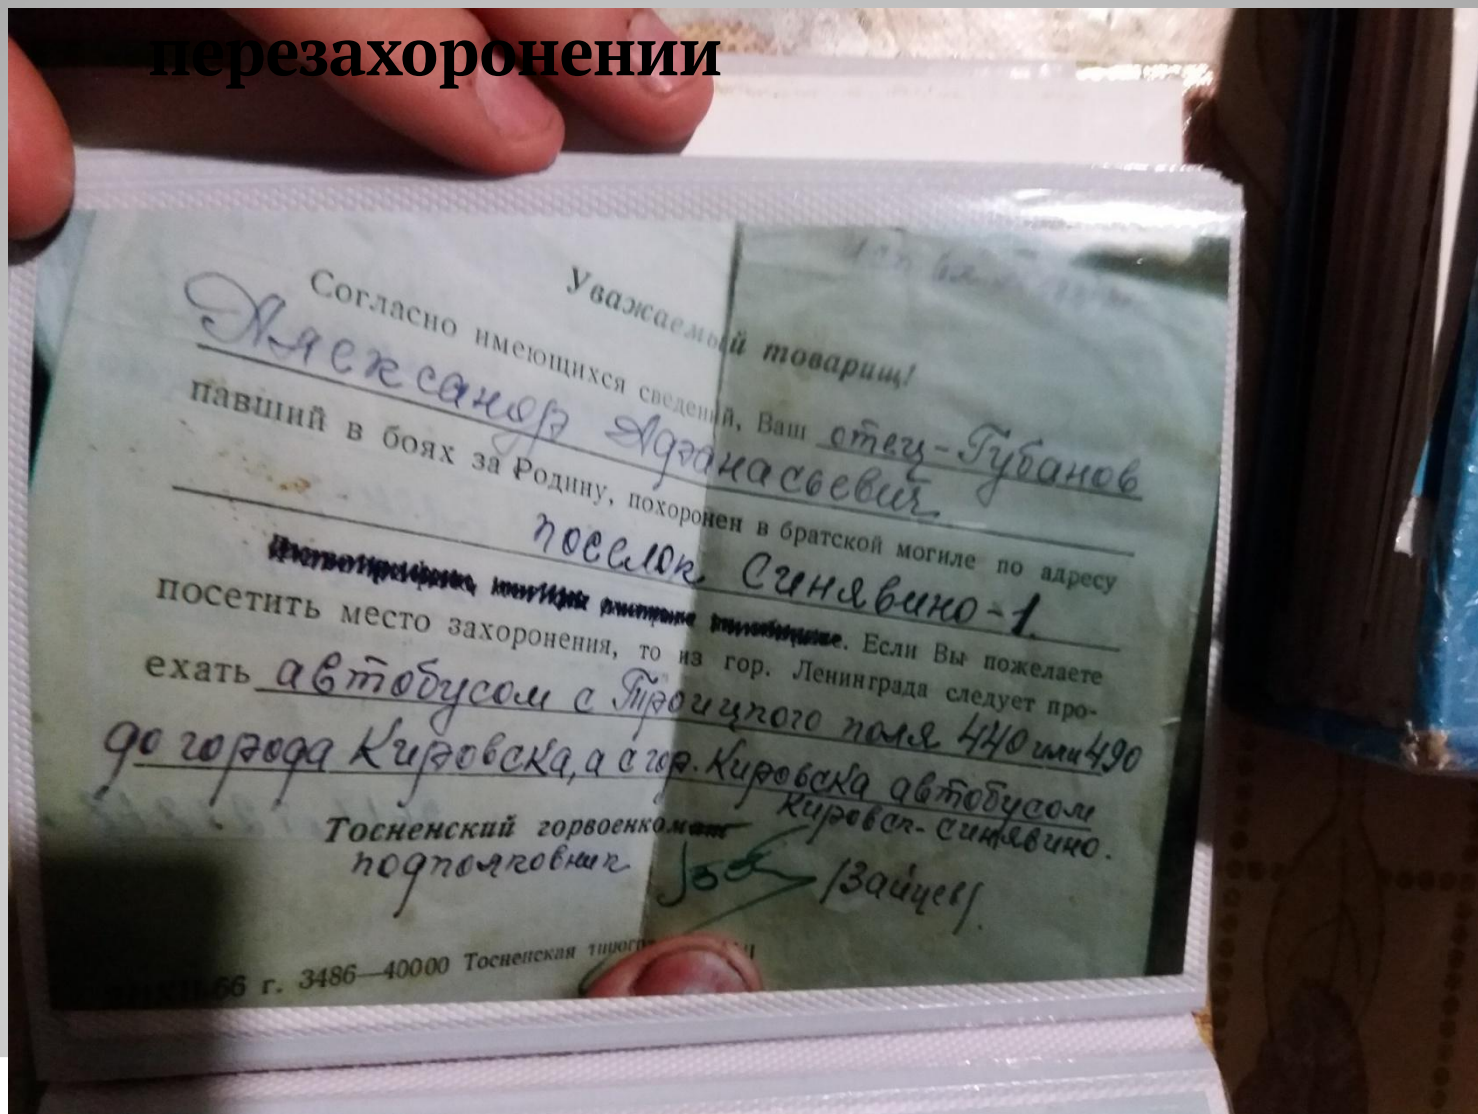 перезахоронении
Уважаемый товарищ!
Согласно имеющихся сведений, Ваш отец - Губанов
Александр Афанасьевич
павший в боях за Родину, похоронен в братской могиле по адресу
поселок Синявино-1.
Если Вы пожелаете
посетить место захоронения, то из гор. Ленинграда следует про-
ехать автобусом с Троицкого поля 440 или 490
до города Кировска, а с гор. Кировска автобусом
Кировск - Синявино.
Тосненский горвоенком
подполковник /Зайцев/.
66 г. 3486—40000 Тосненская